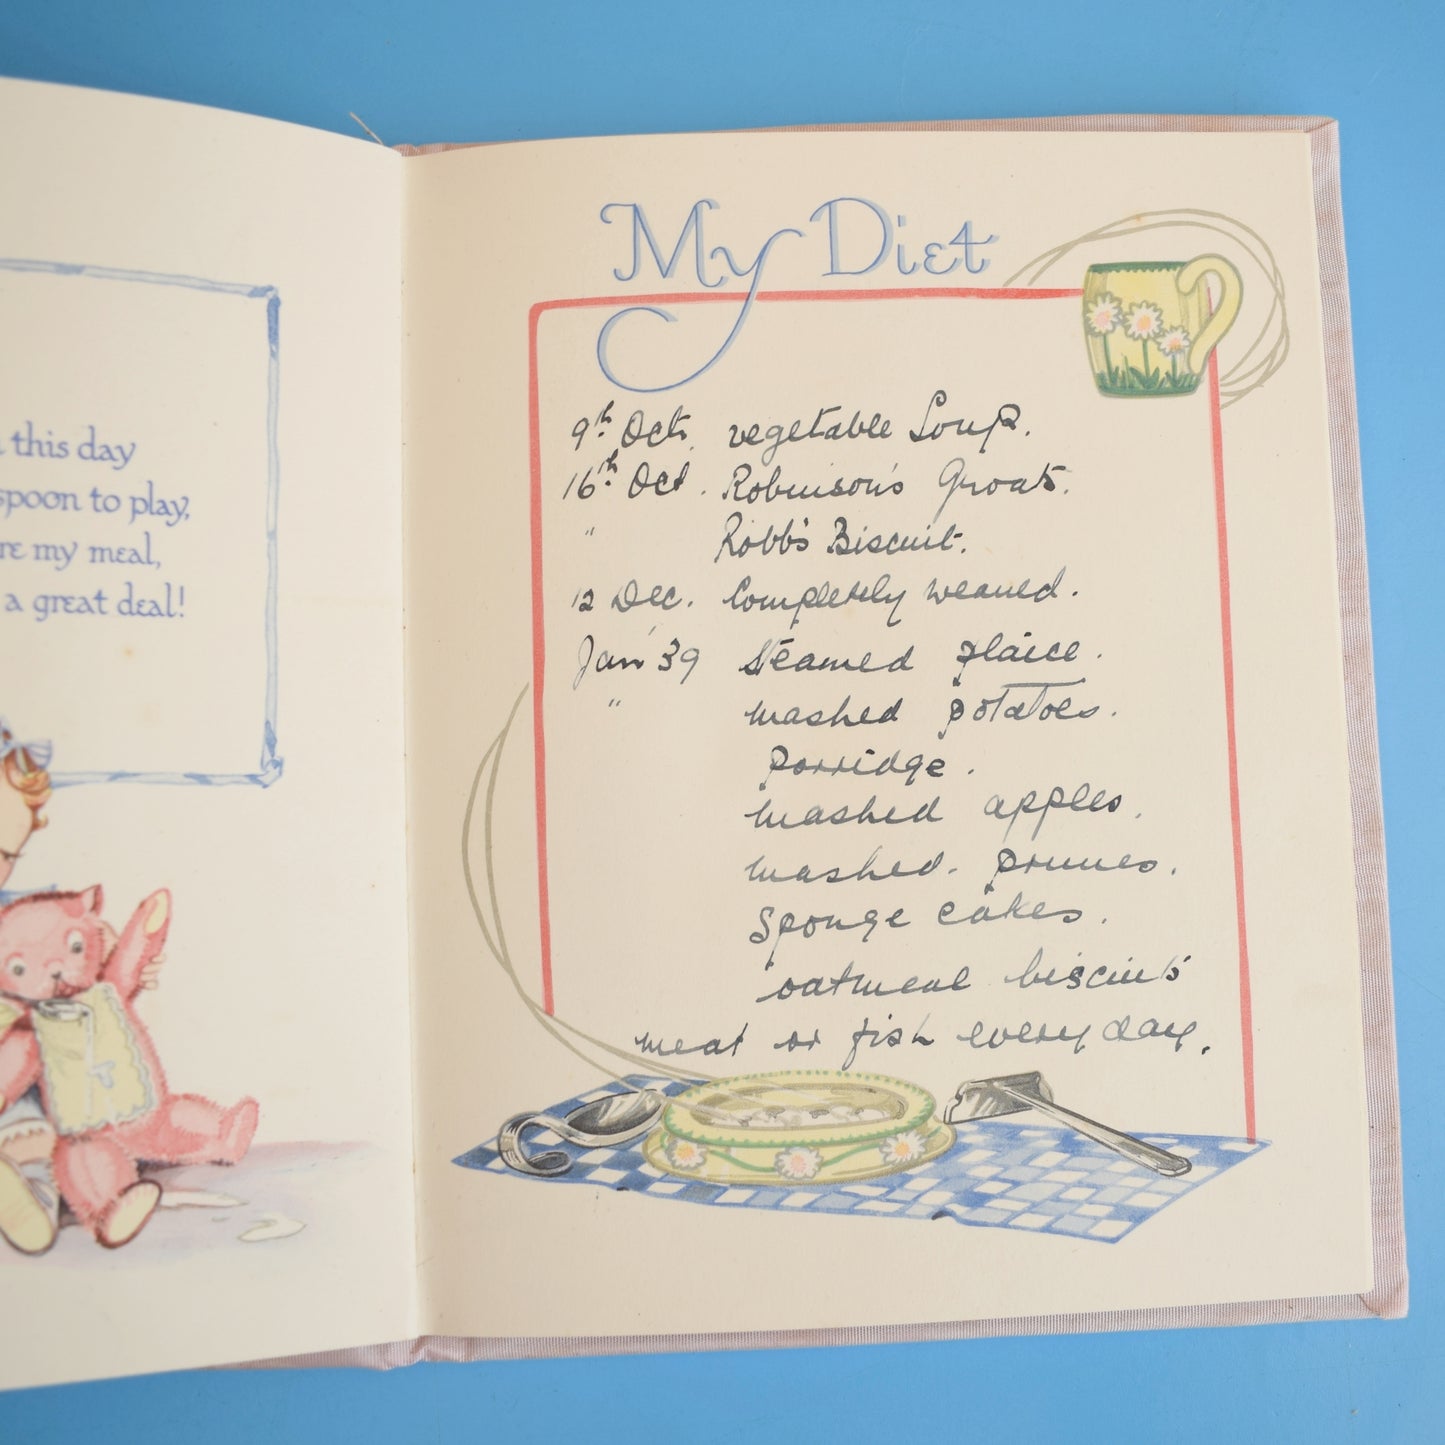 this day
spoon to play,
my meal,
a great deal!
My Diet
9th Oct. vegetable Soup.
16th Oct. Robinson's Groats.
" Robb's Biscuit.
12 Dec. Completely weaned.
Jan '39 Steamed plaice.
" mashed potatoes.
porridge.
mashed apples.
mashed. prunes.
Sponge cakes.
oatmeal biscuits
meat or fish every day.